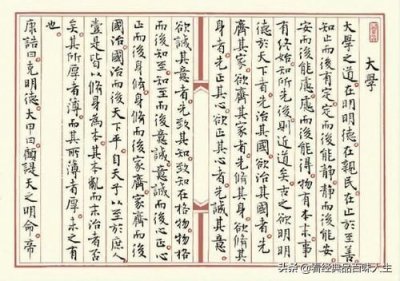 大學
大學之道在明明德在親民在止於至善
知止而後有定定而後能靜靜而後能安
安而後能慮慮而後能得物有本末事
有終始知所先後則近道矣古之欲明明
德於天下者先治其國欲治其國者先
齊其家欲齊其家者先修其身欲修其
身者先正其心欲正其心者先誠其意
欲誠其意者先致其知致知在格物物格
而後知至知至而後意誠意誠而後心正心
正而後身修身修而後家齊家齊而後
國治國治而後天下平自天子以至於庶人
壹是皆以修身為本其本亂而末治者否
矣其所厚者薄而其所薄者厚未之有
也
康誥曰克明德大甲曰顧諟天之明命帝
头条@看经典品百味人生